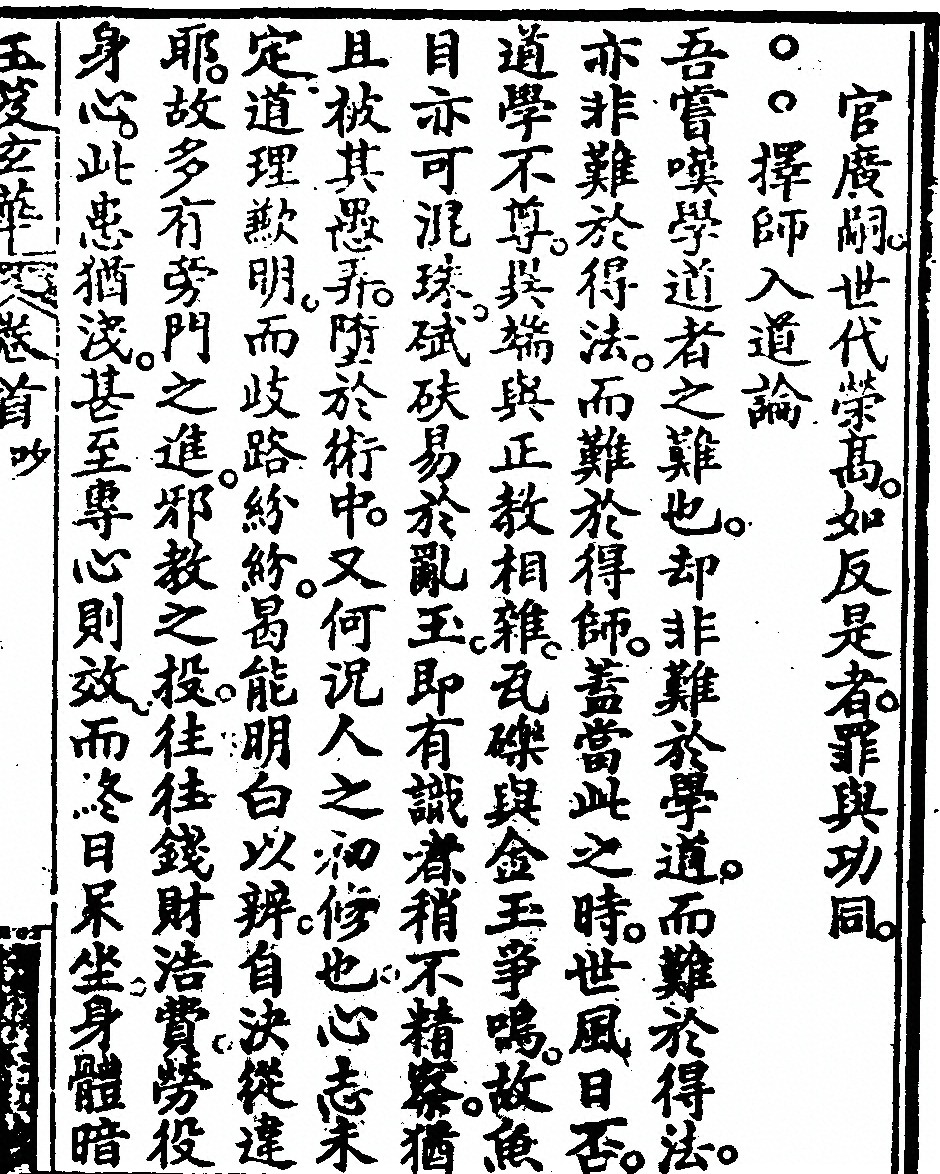 官廣嗣。世代榮高。如反是者。罪與功同。
○○擇師入道論
吾嘗嘆學道者之難也。却非難於學道。而難於得法。
亦非難於得法。而難於得師。蓋當此之時。世風日否。
道學不尊。異端與正教相雜。瓦礫與金玉爭鳴。故魚
目亦可混珠。碔砆易於亂玉。即有識者稍不精察。猶
且被其愚弄。墮於術中。又何況人之初修也。心志未
定。道理歉明。而歧路紛紛。曷能明白以辨。自決從違
耶。故多有旁門之進。邪教之投。往往錢財浩費。勞役
身心。此患猶淺。甚至專心則效。而終日呆坐。身體暗
玉芨玄華 卷首 吵